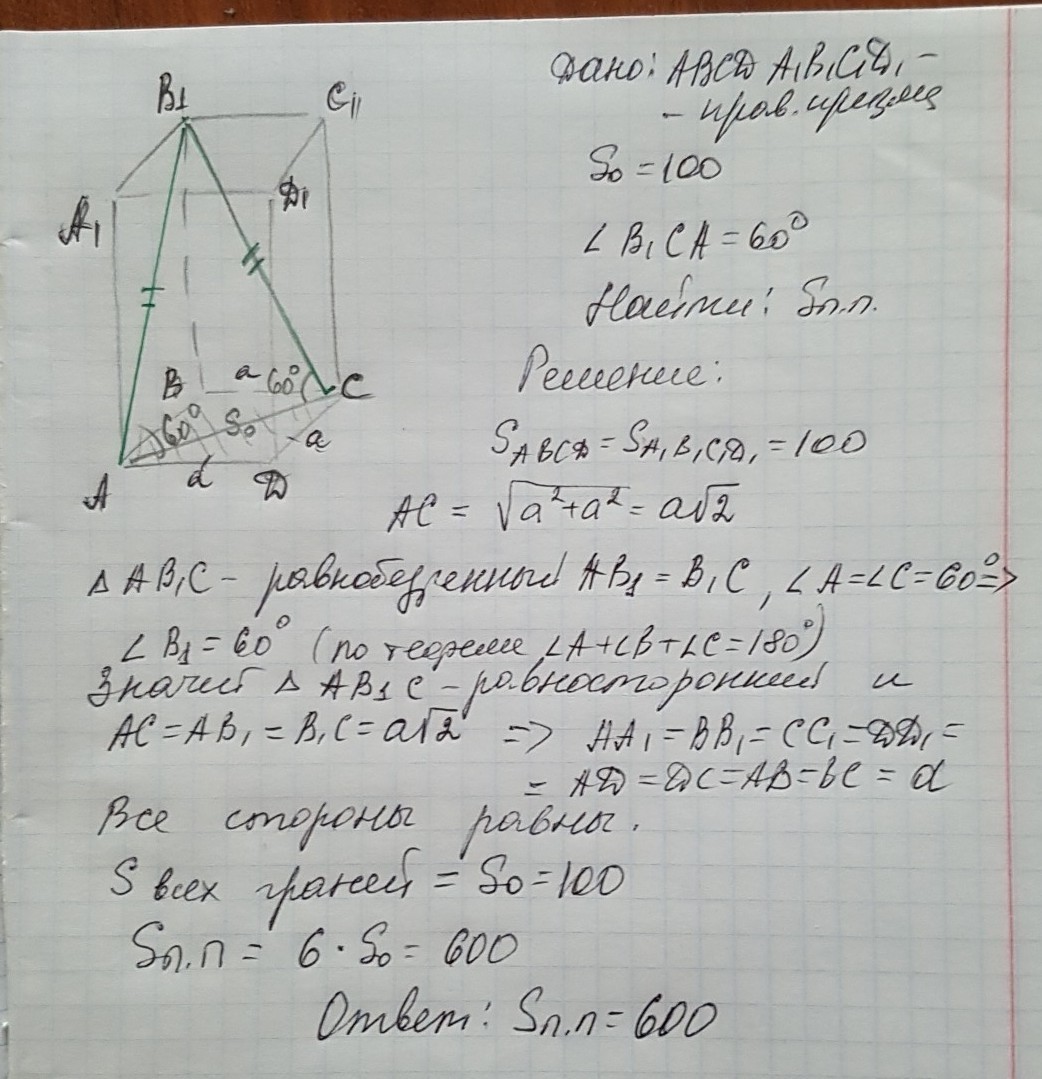 Дано: ABCD A₁B₁C₁D₁ –
– прав. призма
S₀ = 100
∠ B₁CA = 60°
Найти: Sп.п.
Решение:
S ABCD = S A₁B₁C₁D₁ = 100
AC = √a²+a² = a√2
Δ AB₁C – равнобедренный AB₁ = B₁C, ∠A = ∠C = 60° =>
∠ B₁ = 60° (по теореме ∠A+∠B+∠C = 180°)
Значит Δ AB₁C – равносторонний и
AC = AB₁ = B₁C = a√2 => AA₁ = BB₁ = CC₁ = DD₁ =
= AD = DC = AB = BC = a
Все стороны равны.
S всех граней = S₀ = 100
Sп.п = 6 · S₀ = 600
Ответ: Sп.п = 600
B₁ C₁
A₁ D₁
B a 60° C
60° S₀ a
A a D